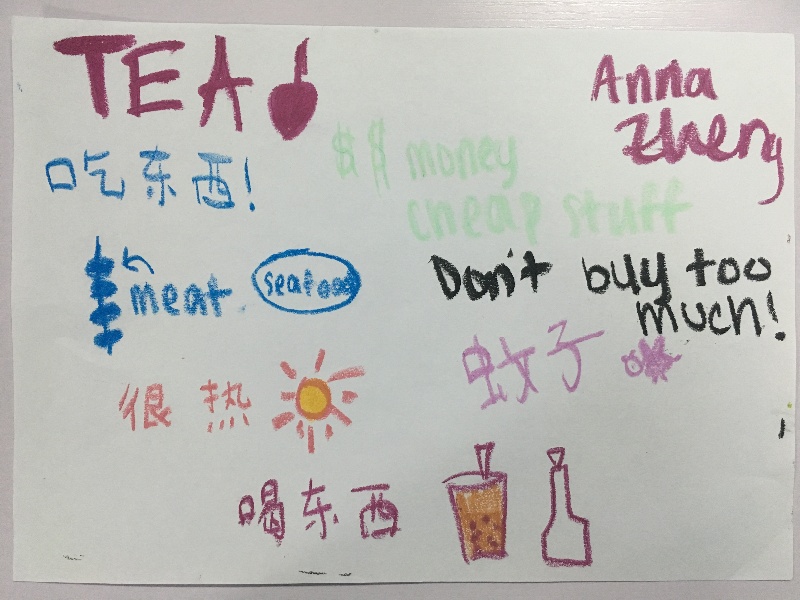 TEA
Anna
Zheng
吃东西!
$$ money
cheap stuff
meat
seafood
Don't buy too
much!
蚊子
很热
喝东西